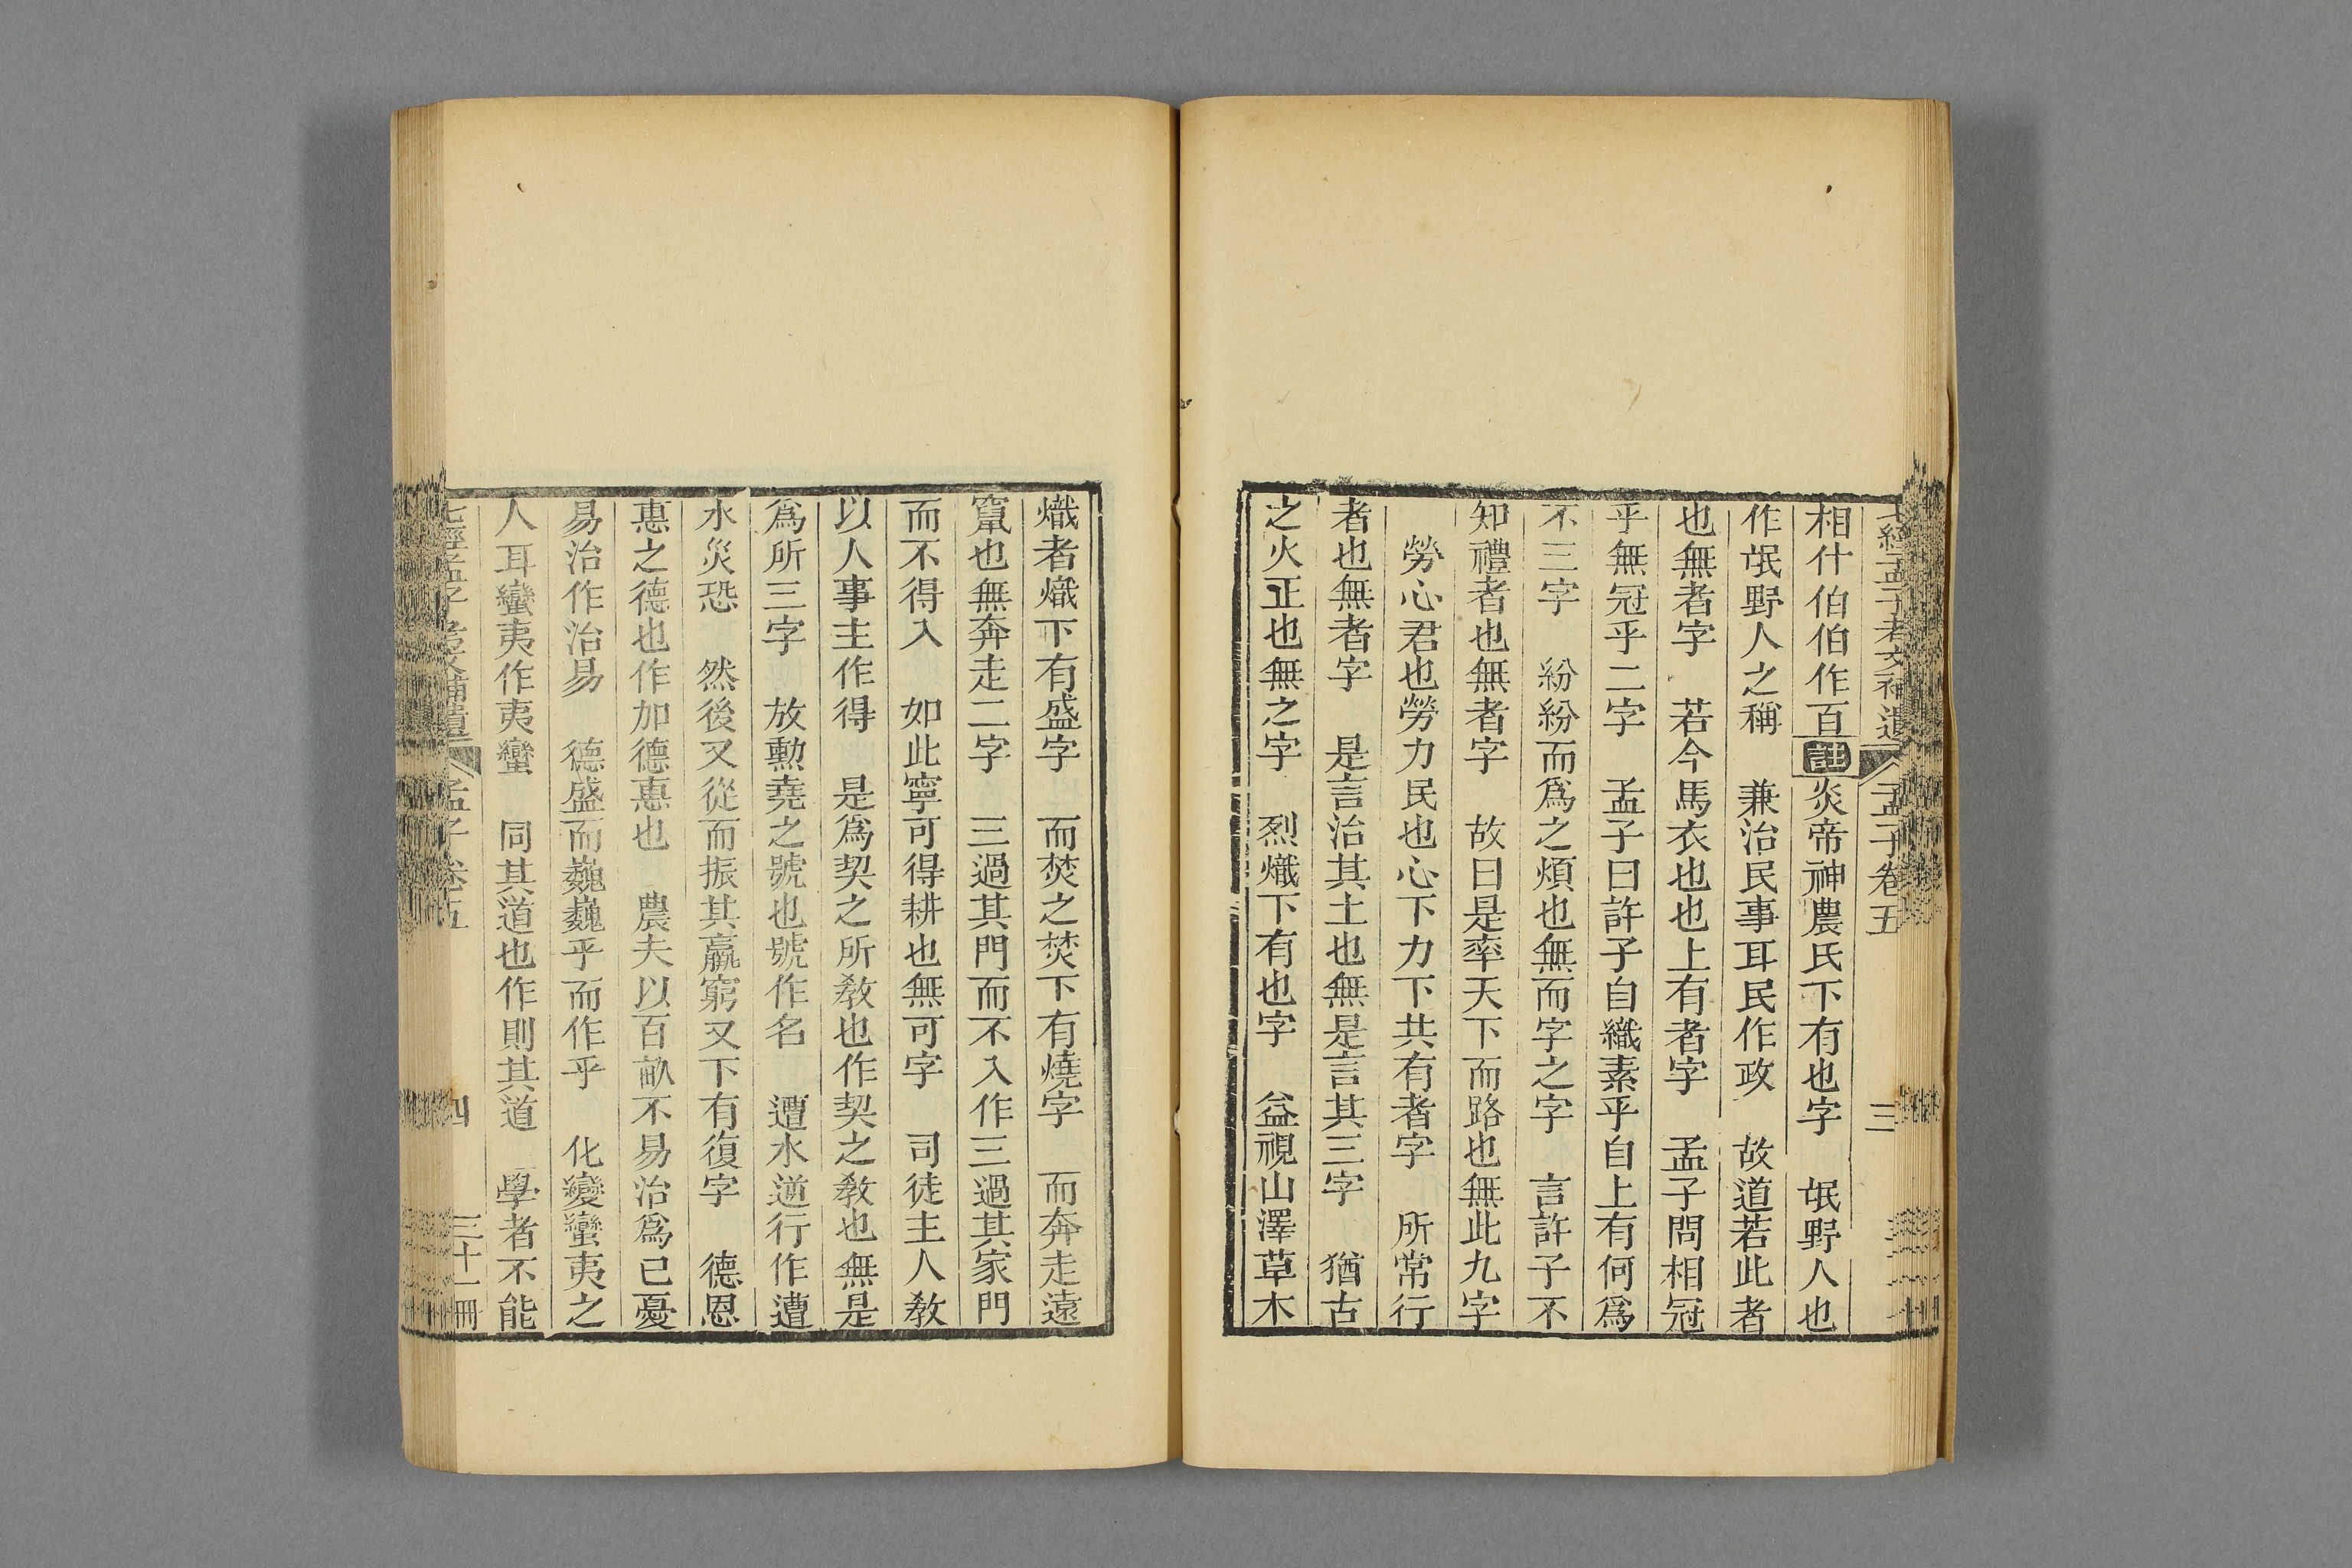 七經孟子考文補遺 孟子卷五 三
相什伯伯作百 註 炎帝神農氏下有也字 氓野人也
作氓野人之稱 兼治民事耳民作政 故道若此者
也無者字 若今馬衣也也上有者字 孟子問相冠
乎無冠乎二字 孟子曰許子自織素乎自上有何爲
不三字 紛紛而爲之煩也無而字之字 言許子不
知禮者也無者字 故曰是率天下而路也無此九字
勞心君也勞力民也心下力下共有者字 所常行
者也無者字 是言治其土也無是言其三字 猶古
之火正也無之字 烈熾下有也字 益視山澤草木
熾者熾下有盛字 而焚之焚下有燒字 而奔走遠
竄也無奔走二字 三過其門而不入作三過其家門
而不得入 如此寧可得耕也無可字 司徒主人敎
以人事主作得 是爲契之所敎也作契之敎也無是
爲所三字 放勳堯之號也號作名 遭水逆行作遭
水災恐 然後又從而振其羸窮又下有復字 德恩
惠之德也作加德惠也 農夫以百畝不易治爲己憂
易治作治易 德盛而巍巍乎而作乎 化變蠻夷之
人耳蠻夷作夷蠻 同其道也作則其道 學者不能
七經孟子考文補遺 孟子卷五 四 三十一冊